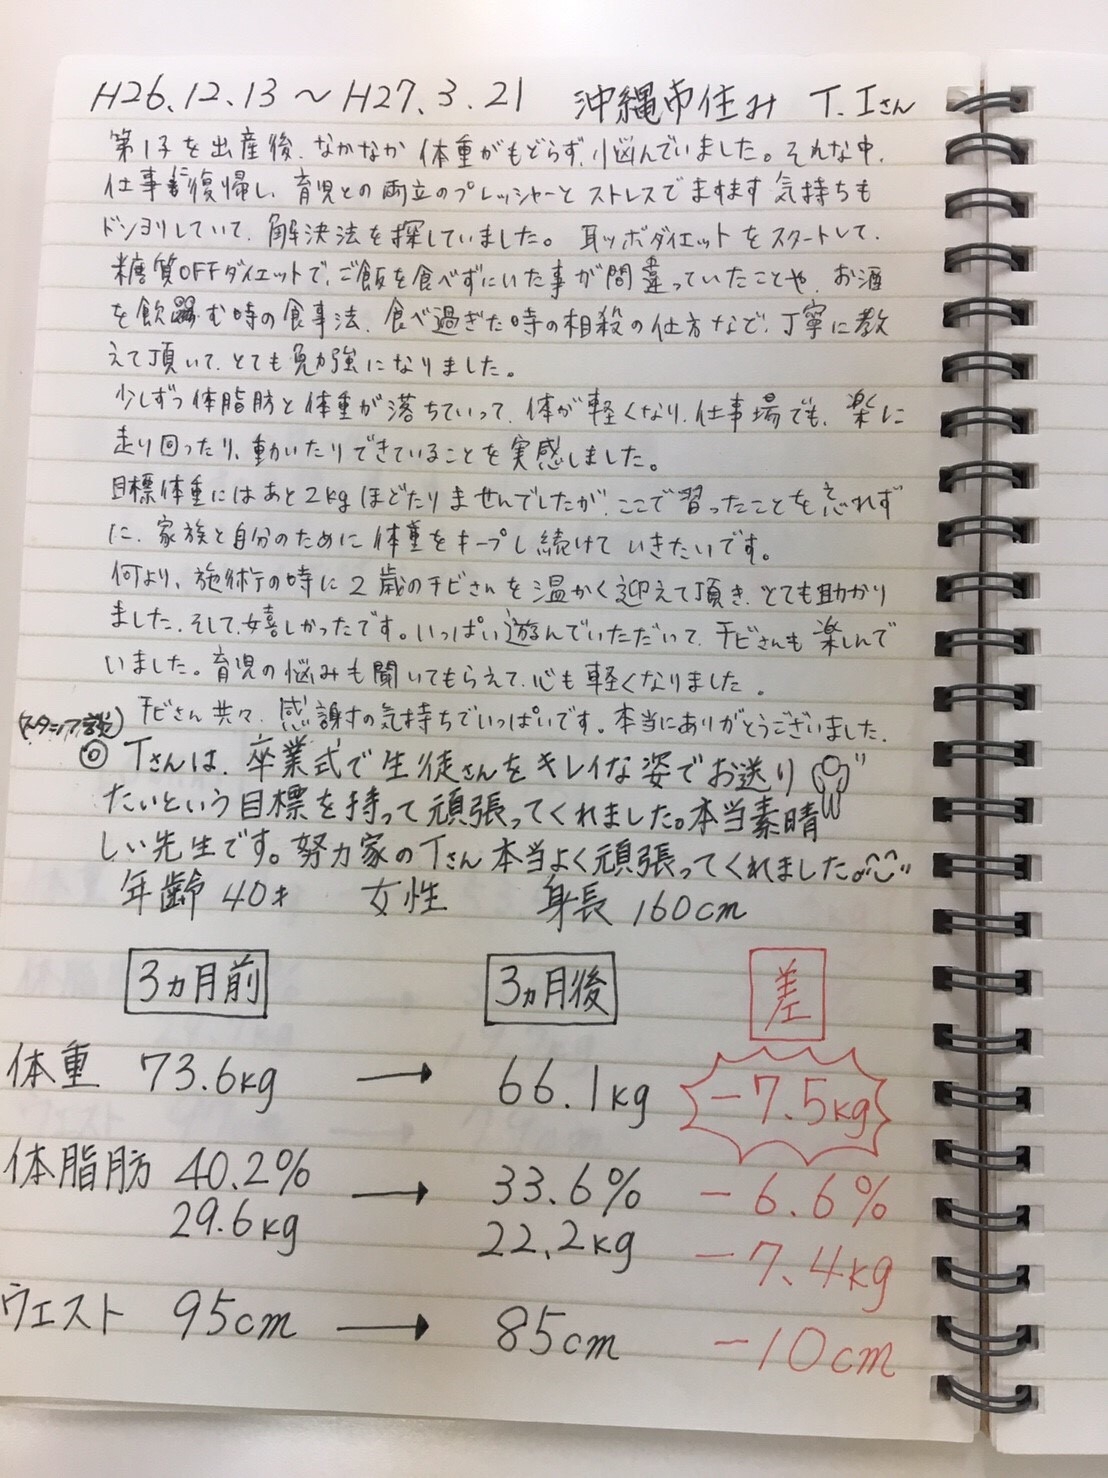 H26.12.13〜H27.3.21 沖縄市住み T.Iさん
第1子を出産後、なかなか体重がもどらず、悩んでいました。そんな中、
仕事復帰し、育児との両立のプレッシャーとストレスでますます気持ちも
ドンヨリしていて、解決法を探していました。耳ツボダイエットをスタートして、
糖質OFFダイエットで、ご飯を食べずにいた事が間違っていたことや、お酒
を飲む時の食事法、食べ過ぎた時の相殺の仕方など、丁寧に教
えて頂いて、とても勉強になりました。
少しずつ体脂肪と体重が落ちていって、体が軽くなり、仕事場でも、楽に
走り回ったり、動いたりできていることを実感しました。
目標体重にはあと2kgほどたりませんでしたが、ここで習ったことを忘れず
に、家族と自分のために体重をキープし続けていきたいです。
何より、施術の時に2歳のチビさんを温かく迎えて頂き、とても助かり
ました、そして、嬉しかったです。いっぱい遊んでいただいて、チビさんも楽しんで
いました。育児の悩みも聞いてもらえて、心も軽くなりました。
チビさん共々、感謝の気持ちでいっぱいです。本当にありがとうございました。
(スタッフ談)
◎Tさんは、卒業式で生徒さんをキレイな姿でお送りし
たいという目標を持って頑張ってくれました。本当素晴
しい先生です。努力家のTさん本当よく頑張ってくれました。
年齢40才 女性 身長160cm
3ヵ月前 3ヵ月後 差
体重 73.6kg → 66.1kg -7.5kg
体脂肪 40.2% → 33.6% -6.6%
29.6kg 22.2kg -7.4kg
ウェスト 95cm → 85cm -10cm